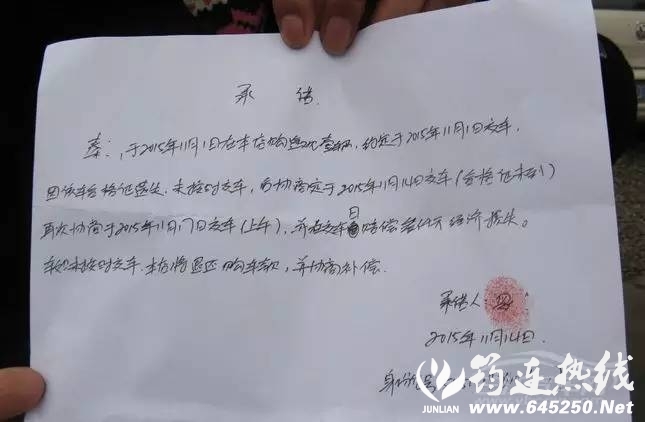 承 诺
秦 ，于2015年11月1日在本店购 ，约定于2015年11月1日交车，
因该车合格证遗失，未按时交车，另协商定于2015年11月14日交车（合格证未到）
再次协商于2015年11月17日交车（上午），并在交车日赔偿 经济损失。
如 未按时交车，本店将退还购车款，并协商补偿。
承诺人：
2015年11月14日.
身份证号
筠连热线
JUNLIAN www.645250.Net